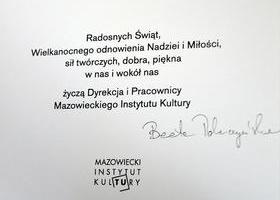 Radosnych Świąt,
Wielkanocnego odnowienia Nadziei i Miłości,
sił twórczych, dobra, piękna
w nas i wokół nas
życzą Dyrekcja i Pracownicy
Mazowieckiego Instytutu Kultury
Beata
MAZOWIECKI
INSTYTUT
KULTURY